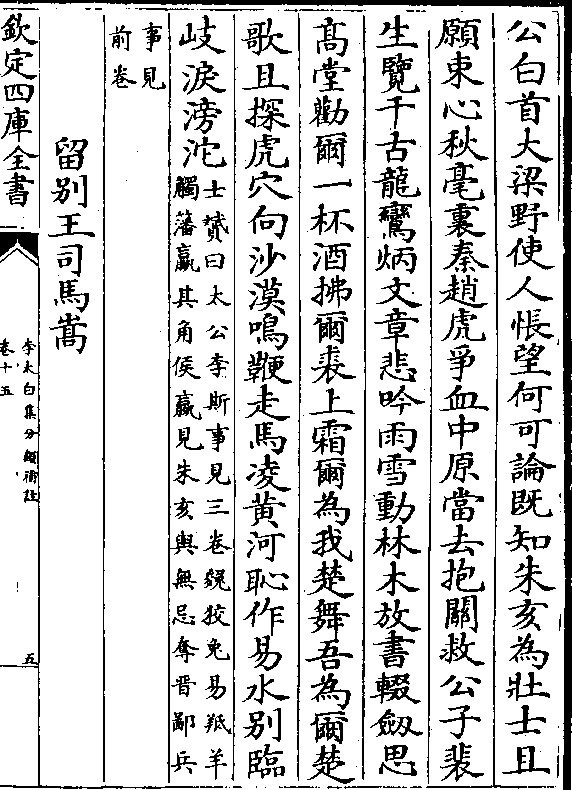 公白首大梁野使人悵望何可論既知朱亥為壯士且
願束心秋毫裏秦趙虎爭血中原當去抱關救公子裴
生覽千古龍鸞炳文章悲吟雨雪動林木放書輟劔思
髙堂勸爾一杯酒拂爾裘上霜爾為我楚舞吾為爾楚
歌且探虎穴向沙漠鳴鞭走馬凌黄河恥作易水別臨
岐淚滂沱
士贇曰太公李斯事見三卷毚狡兔易羝羊
觸藩羸其角侯嬴見朱亥與無忌奪晉鄙兵
事見
前卷
留别王司馬嵩
欽定四庫全書
李太白集分類補註
卷十五
五